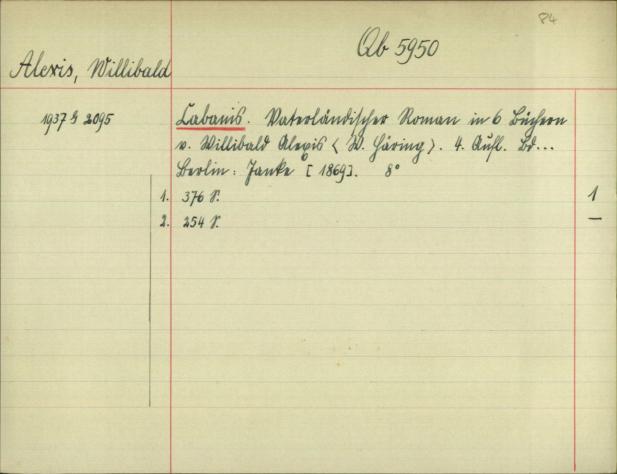 84
Qb 5950
Alexis, Willibald
1937 G 2095
Cabanis. Vaterländischer Roman in 6 Büchern
v. Willibald Alexis < W. Häring >. 4. Aufl. Bd...
Berlin: Janke [1869]. 8°
1. 376 S. 1
2. 254 S. —